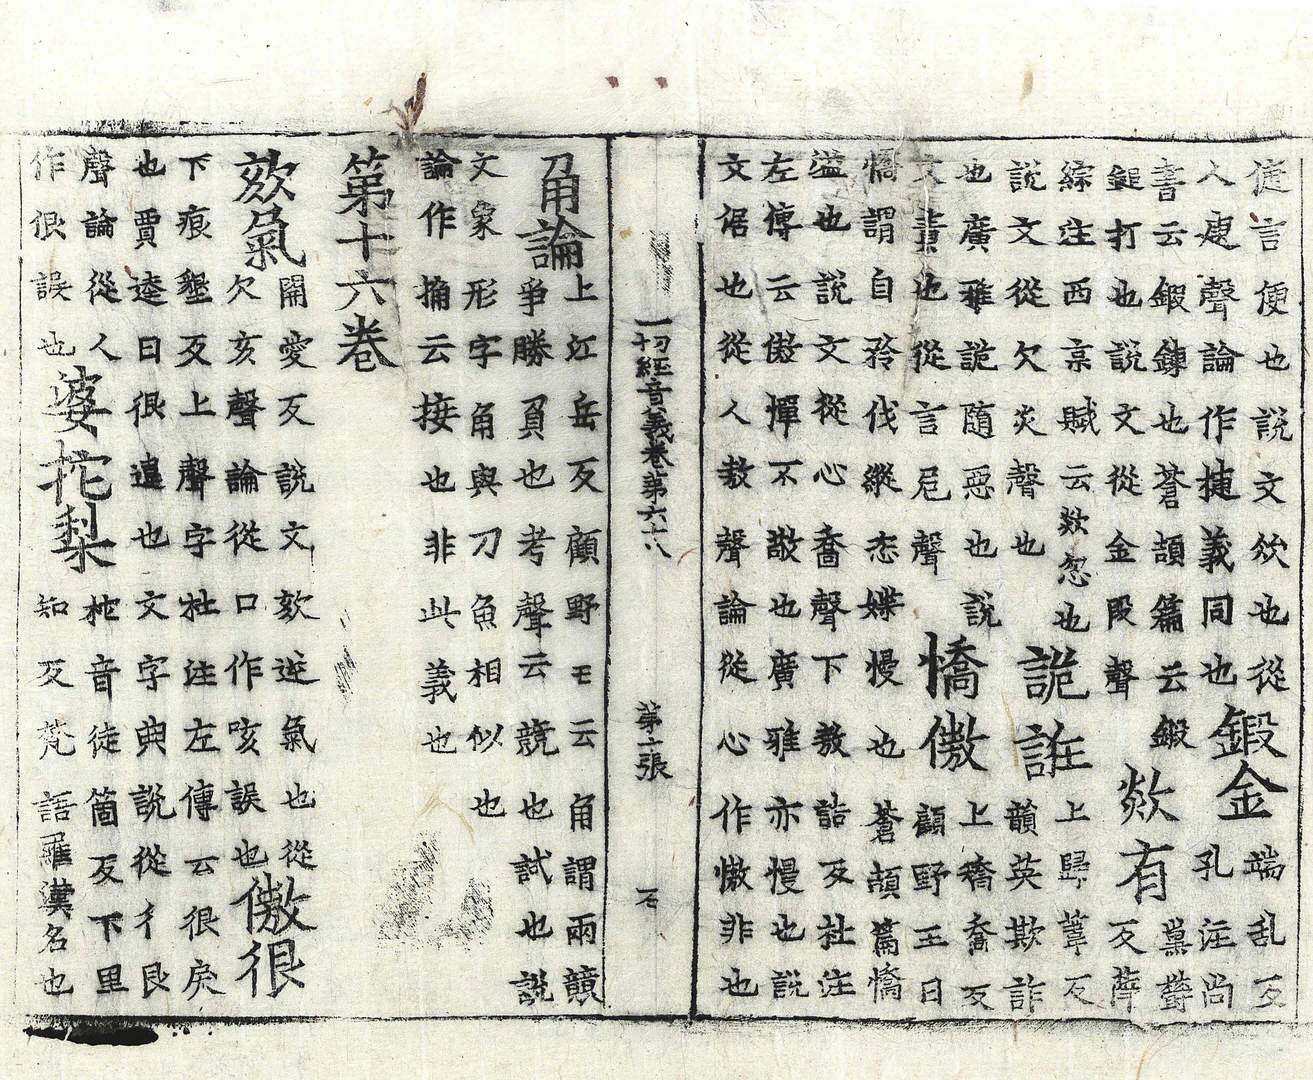 倢言便也說文佽也從
人疌聲論作捷義同也
鍛金
端乱反
孔注尚
書云鍛鍊也蒼頡篇云鍛
鎚打也說文從金段聲
欻有
薰鬱
反薛
綜注西京賦云欻忽也
說文從欠炎聲也
詭誑
上歸葦反
韻英欺詐
也廣雅詭隨惡也說
文責也從言危聲
憍傲
上矯喬反
顧野王曰
憍謂自矜伐縱恣媟慢也蒼頡篇憍
溢也說文從心喬聲下敖誥反杜注
左傳云傲憚不敬也廣雅亦慢也說
文倨也從人敖聲論從心作慠非也
一切經音義卷第六十八 第二張 石
角論
上江岳反顧野王云角謂兩競
爭勝負也考聲云競也試也說
文象形字角與刀魚相似也
論作捔云接也非此義也
第十六卷
欬氣
開愛反說文欬逆氣也從
欠亥聲論從口作咳誤也
傲很
下痕墾反上聲字杜注左傳云很戾
也賈逵曰很違也文字典說從彳艮
聲論從人
作佷誤也
婆柁梨
柁音徒箇反下里
知反梵語羅漢名也